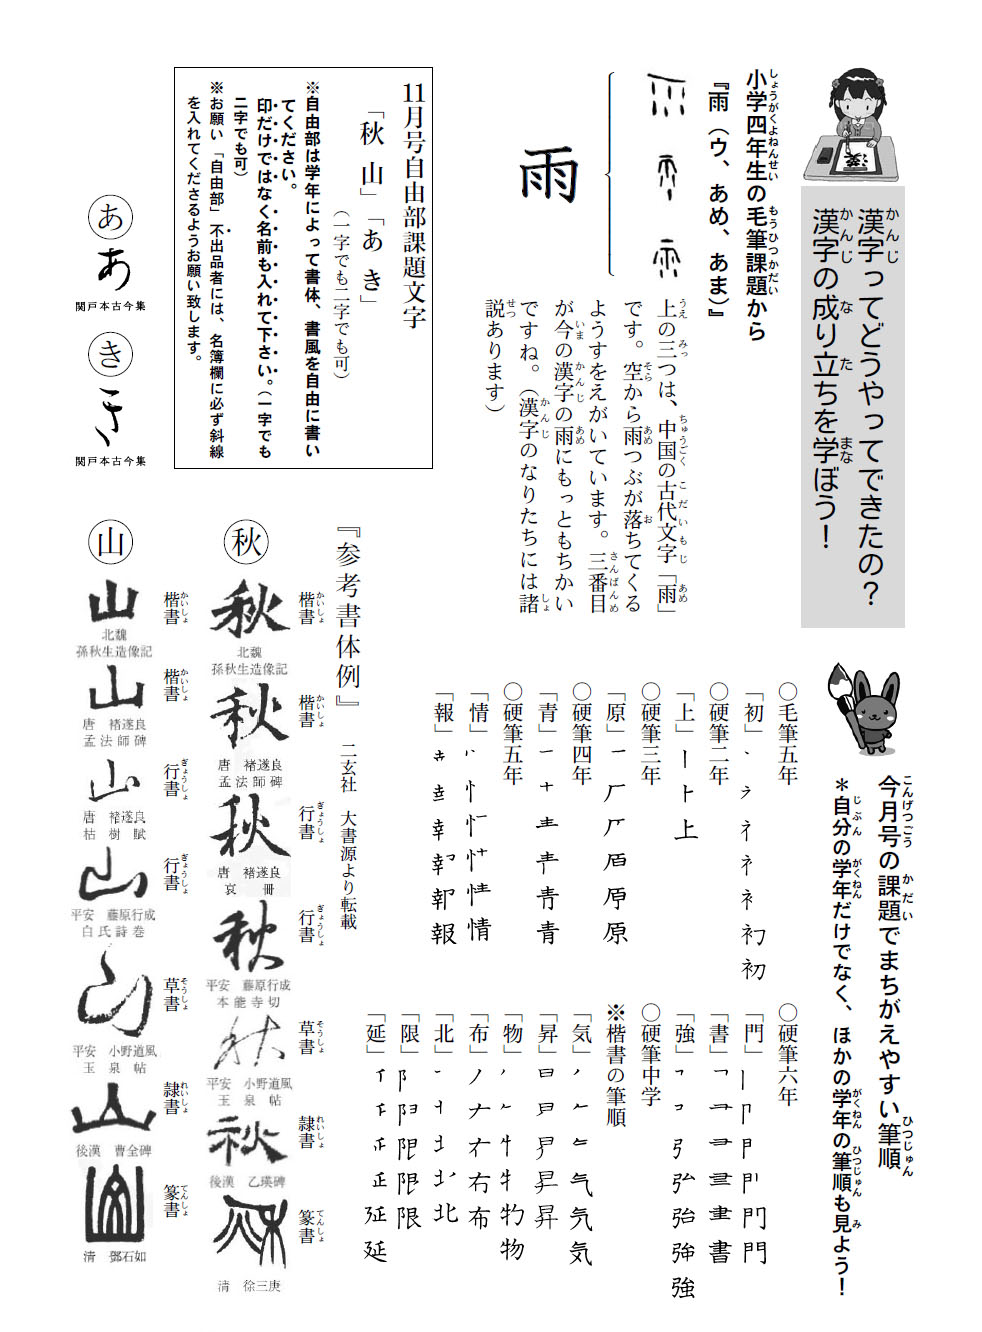 漢字ってどうやってできたの？
漢字の成り立ちを学ぼう！
小学四年生の毛筆課題から
『雨（ウ、あめ、あま）』
雨
上の三つは、中国の古代文字「雨」
です。空から雨つぶが落ちてくる
ようすをえがいています。三番目
が今の漢字の雨にもっともちかい
ですね。（漢字のなりたちには諸
説あります）
11月号自由部課題文字
「秋　山」「あ　き」
（一字でも二字でも可）
※自由部は学年によって書体、書風を自由に書い
てください。
印だけではなく名前も入れて下さい。（一字でも
二字でも可）
※お願い「自由部」不出品者には、名簿欄に必ず斜線
を入れてくださるようお願い致します。
あ
あ
関戸本古今集
き
き
関戸本古今集
今月号の課題でまちがえやすい筆順
＊自分の学年だけでなく、ほかの学年の筆順も見よう！
○毛筆五年
「初」
初
○硬筆二年
「上」
上
○硬筆三年
「原」
原
○硬筆四年
「青」
青
○硬筆五年
「情」
情
「報」
報
○硬筆六年
「門」
門
「書」
書
「強」
強
○硬筆中学
※楷書の筆順
「気」
気
「昇」
昇
「物」
物
「布」
布
「北」
北
「限」
限
「延」
延
『参考書体例』　二玄社　大書源より転載
秋
楷書
秋
北魏
孫秋生造像記
楷書
秋
唐　褚遂良
孟法師碑
行書
秋
唐　褚遂良
哀　冊
行書
秋
平安　藤原行成
本能寺切
草書
秋
平安　小野道風
玉　泉　帖
隷書
秋
後漢　乙瑛碑
篆書
秋
清　徐三庚
山
楷書
山
北魏
孫秋生造像記
楷書
山
唐　褚遂良
孟法師碑
行書
山
唐　褚遂良
枯　樹　賦
行書
山
平安　藤原行成
白氏詩巻
草書
山
平安　小野道風
玉　泉　帖
隷書
山
後漢　曹全碑
篆書
山
清　鄧石如